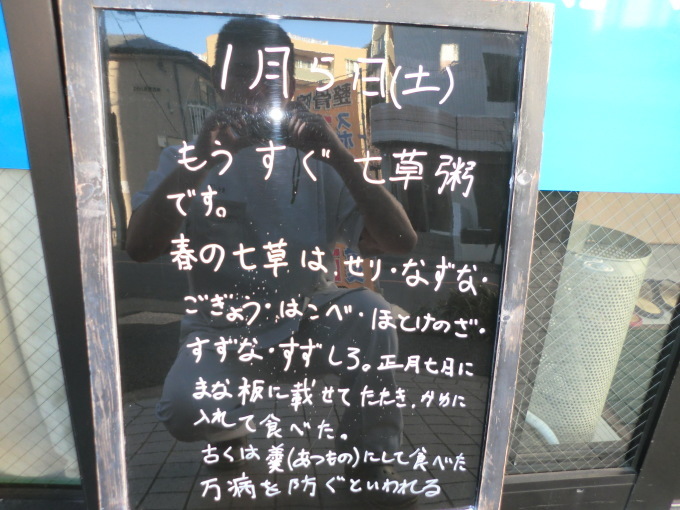 1月5日(土)
もうすぐ七草粥
です。
春の七草は、せり・なずな・
ごぎょう・はこべ・ほとけのざ・
すずな・すずしろ。正月七日に
まな板に載せてたたき、かめに
入れて食べた。
古くは羹(あつもの)にして食べた
万病を防ぐといわれる
整骨院
スポ